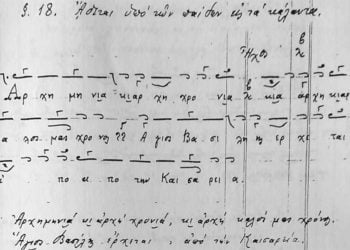 9. 18. ᾌσται ὑπὸ τῶν παίδων εἰς τὰ κάλαντα.
Ἦχος
Αρ χη μη νια κιαρ χη χρο νια κια αρχη κιαρ
α λος μας χρο νος Α γιος Βα σι λη ης ερ χε ται
πο α πο την Και σα ρει α
Ἀρχιμηνιὰ κι ἀρχὴ χρονιά, κι ἀρχὴ καλός μας χρόνος
Ἅγιος Βασίλης ἔρχεται, ἀπὸ τὴν Καισαρεία.